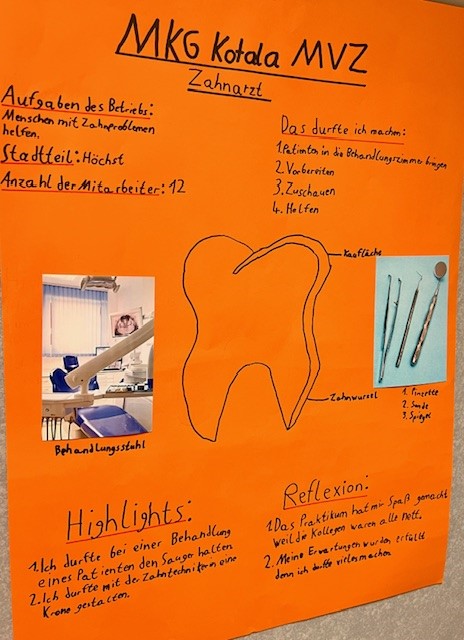 MKG Kotala MVZ
Zahnarzt
Aufgaben des Betriebs:
Menschen mit Zahnproblemen
helfen.
Stadtteil: Höchst
Anzahl der Mitarbeiter: 12
Das durfte ich machen:
1. Patienten in die Behandlungszimmer bringen
2. Vorbereiten
3. Zuschauen
4. Helfen
Kaufläche
Zahnwurzel
Behandlungsstuhl
1. Pinzette
2. Sonde
3. Spiegel
Highlights:
1. Ich durfte bei einer Behandlung
eines Patienten den Sauger halten
2. Ich durfte mit der Zahntechnikerin eine
Krone gestalten.
Reflexion:
1. Das Praktikum hat mir Spaß gemacht
weil die Kollegen waren alle nett.
2. Meine Erwartungen wurden erfüllt
denn ich durfte vieles machen